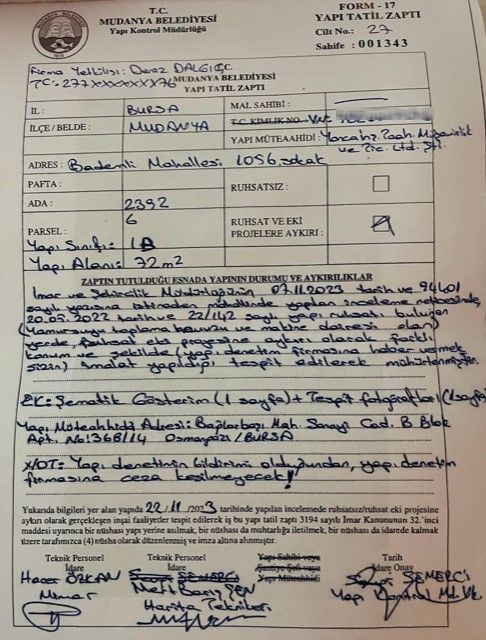 T.C.
MUDANYA BELEDİYESİ
Yapı Kontrol Müdürlüğü
FORM - 17
YAPI TATİL ZAPTI
Cilt No.: 27
Sahife : 001343
Firma Yetkilisi: Deniz DALGIÇ
TC: 277xxxxxxx76
MUDANYA BELEDİYESİ
YAPI TATİL ZAPTI
İL : BURSA
MAL SAHİBİ :
T.C. KİMLİK NO
İLÇE/BELDE : MUDANYA
YAPI MÜTEAHİDİ : İnş. Taah. Mühendislik
ve Tic. Ltd. Şti.
ADRES: Bademli Mahallesi 1056. sokak
PAFTA :
RUHSATSIZ :
ADA : 2392
PARSEL : 6
RUHSAT VE EKİ
PROJELERE AYKIRI :
Yapı Sınıfı: 1A
Yapı Alanı: 72 m2
ZAPTIN TUTULDUĞU ESNADA YAPININ DURUMU VE AYKIRILIKLAR
İmar ve Şehircilik Müdürlüğünün 07.11.2023 tarih ve 94401
sayılı yazısı istinaden mahallinde yapılan inceleme neticesinde,
20.05.2022 tarih ve 22/142 sayılı yapı ruhsatı bulunan
(Yağmursuyu toplama havuzu ve makine dairesi olan)
yerde, ruhsat eki projesine aykırı olarak farklı
konum ve şekilde (yapı denetim firmasına haber vermek
sizin) imalat yapıldığı tespit edilerek mühürlenmiştir.
EK: Şematik Gösterim (1 sayfa) + Tespit fotoğrafları (1 sayfa)
Yapı Müteahhidi Adresi: Bağlarbaşı Mah. Sanayi Cad. B Blok
Apt. No: 368/14 Osmangazi/BURSA
NOT: Yapı denetimin bildirimi olduğundan, yapı denetim
firmasına ceza kesilmeyecek!
Yukarıda bilgileri yer alan yapıda 22/11/2023 tarihinde yapılan incelemede ruhsatsız/ruhsat eki projesine
aykırı olarak gerçekleşen inşai faaliyetler tespit edilerek iş bu yapı tatil zaptı 3194 sayılı İmar Kanununun 32.'inci
maddesi uyarınca bir nüshası yapı yerine asılmak, bir nüshası da muhtarlığa iletilmek, bir nüshası da idarede kalmak
üzere tarafımızca (4) nüsha olarak düzenlenmiş ve imza altına alınmıştır.
Teknik Personel
İdare
Hacer ÖZKAN
Mimar
Teknik Personel
İdare
ŞEN
Harita Teknikeri
Yapı Sahibi veya
Şantiye Şefi veya
Yapı Müteahhidi
Tarih
İdare Onay
SEMERCİ
Yapı Kontrol Md. Vk.